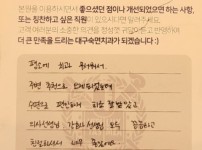 본원을 이용하시면서 좋으셨던 점이나 개선되었으면 하는 사항,
또는 칭찬하고 싶은 직원이 있으시다면 알려주세요.
고객 여러분의 소중한 의견을 항상 귀담아듣고 반영하여
더 큰 만족을 드리는 대구숙면치과가 되겠습니다 :)
평소에 치과 무서워서
주변 추천으로 오게되었는데
수면으로 편안하게 치료 잘 받았고
의사선생님, 간호사선생님 모두 꼼꼼하고
친절하셔서 너무